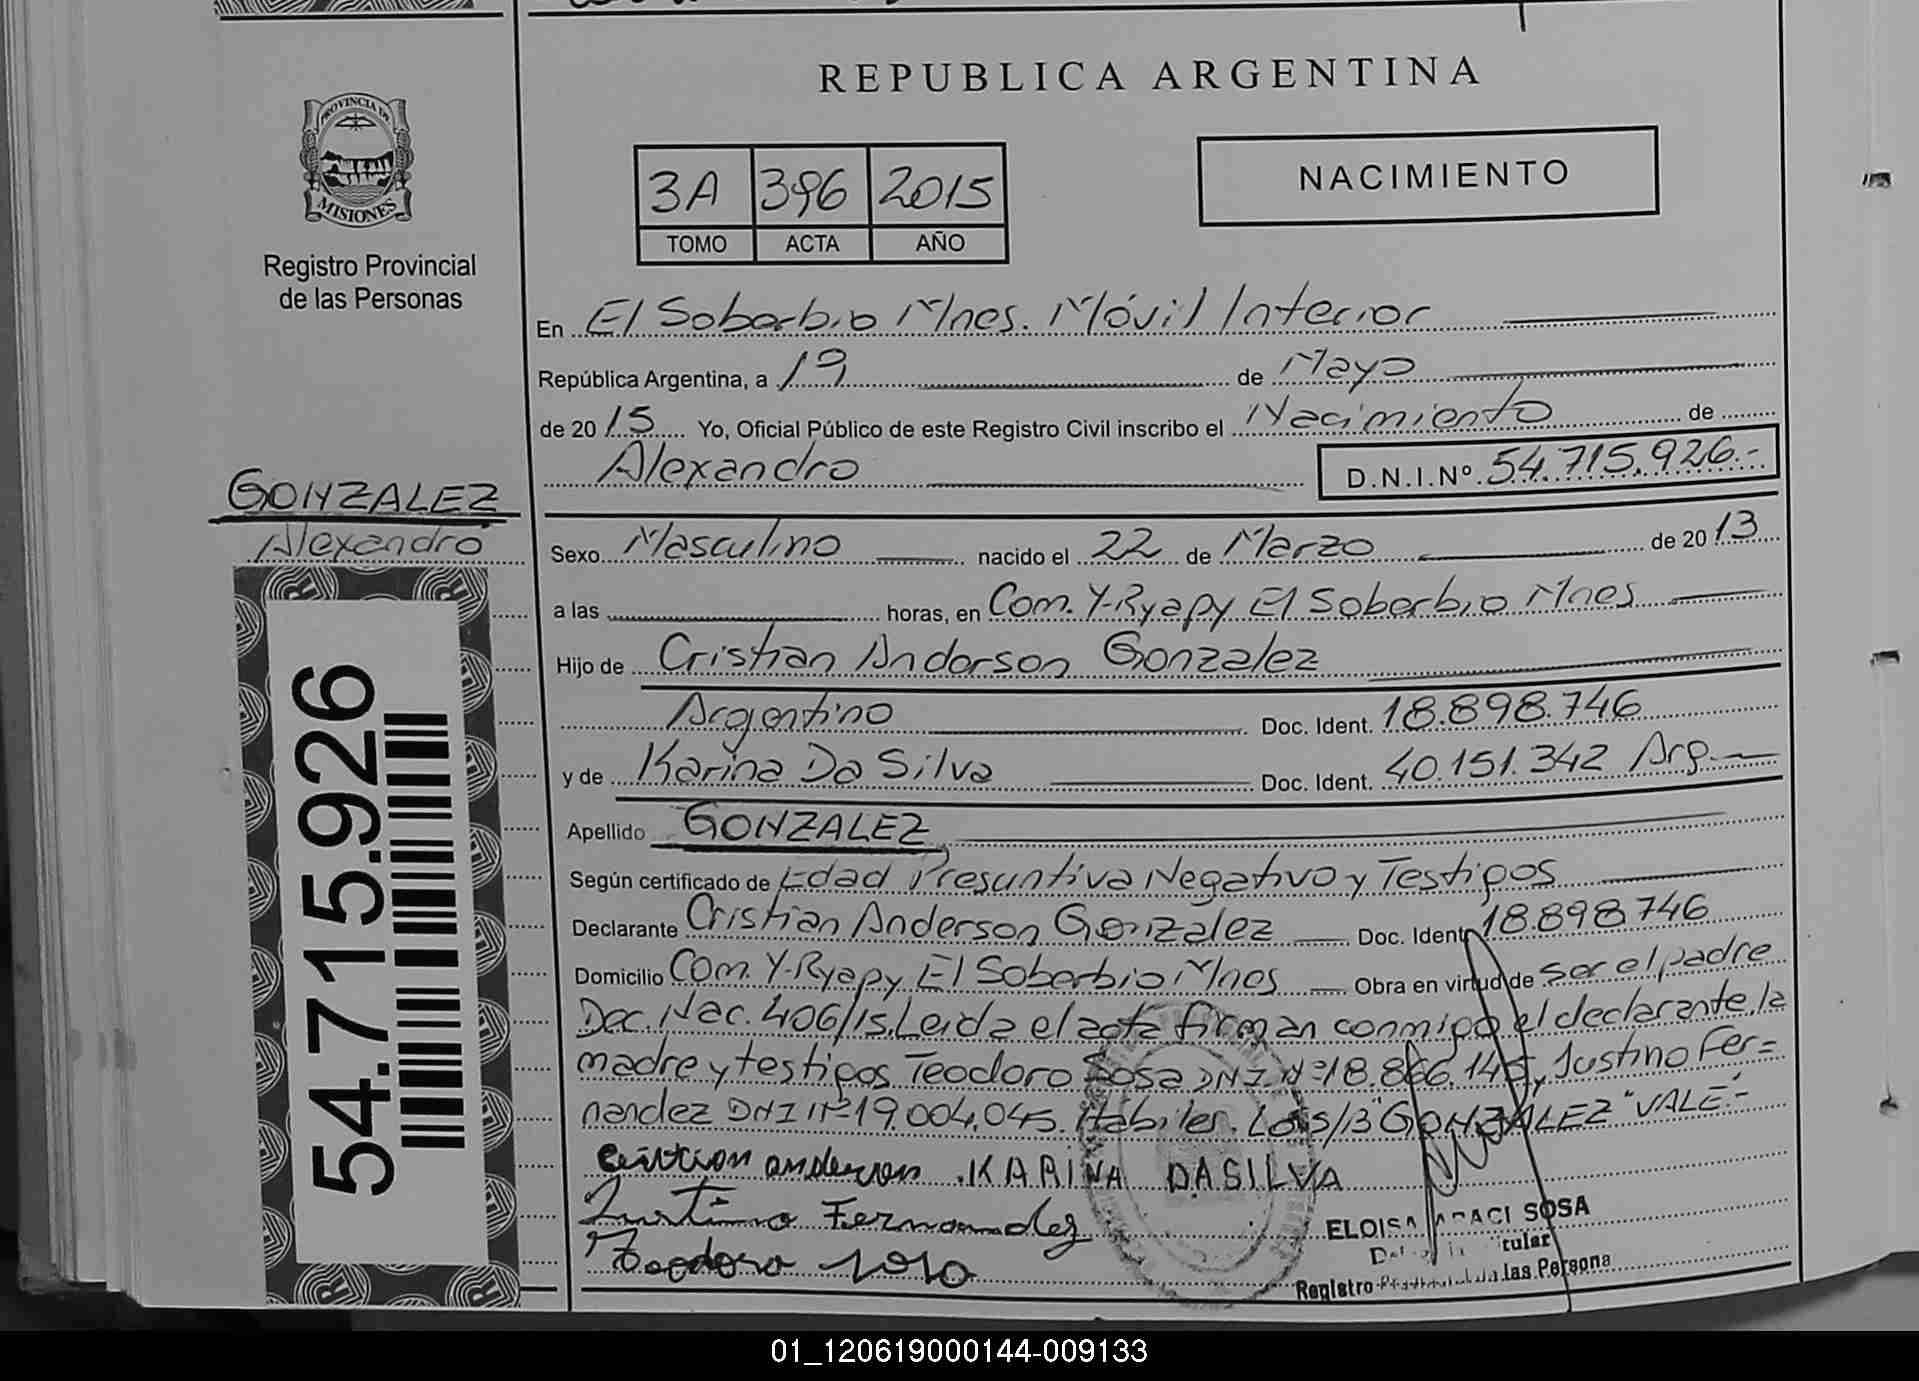 REPUBLICA ARGENTINA
PROVINCIA DE
MISIONES
Registro Provincial
de las Personas
3A 396 2015
TOMO ACTA AÑO
NACIMIENTO
En El Soberbio Mnes. Móvil Interior
República Argentina, a 19 de Mayo
de 2015 Yo, Oficial Público de este Registro Civil inscribo el Nacimiento de
Alexandro D.N.I.Nº 54.715.926.-
GONZALEZ
Alexandro
Sexo Masculino nacido el 22 de Marzo de 2013
a las horas, en Com. Y-Ryapy El Soberbio Mnes
Hijo de Cristian Anderson Gonzalez
Argentino Doc. Ident. 18.898.746
y de Karina Da Silva Doc. Ident. 40.151.342 Arg.
Apellido GONZALEZ
Según certificado de Edad Presuntiva Negativo y Testigos
Declarante Cristian Anderson Gonzalez Doc. Ident. 18.898746
Domicilio Com. Y-Ryapy El Soberbio Mnes Obra en virtud de ser el padre
Dec. Nac. 406/15. Leida el acta firman conmigo el declarante, la
madre y testigos Teodoro Sosa DNI Nº 18.866.145, Justino Fer=
nandez DNI Nº 19.004.045. Habiles. L "GONZALEZ" VALE.-
54.715.926
anderson KARINA DASILVA
Justino Fernandez
Teodoro soso
ELOISA ARACI SOSA
Registro las Persona
01_120619000144-009133